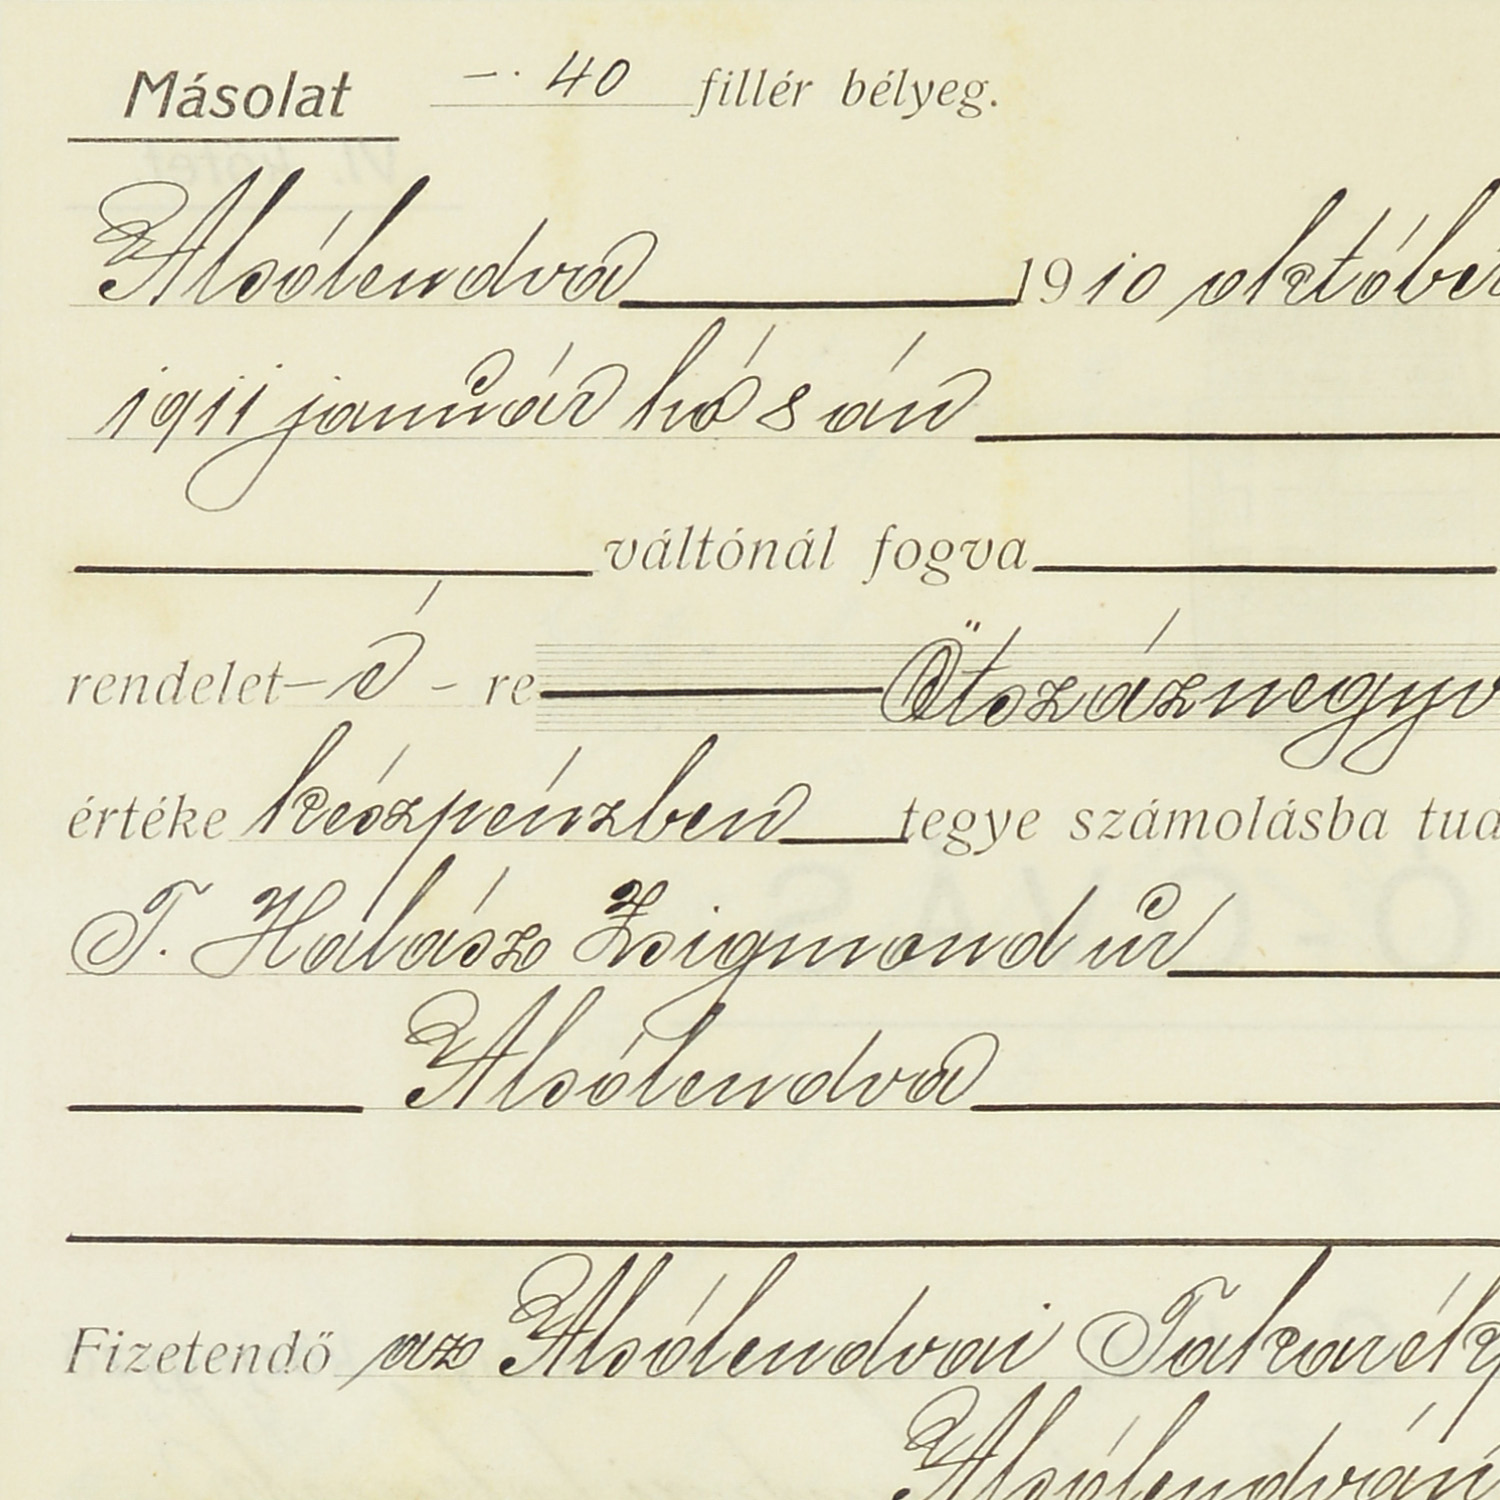 Másolat –· 40 fillér bélyeg.
Alsólendva 1910 október
1911 január hó 8 án
váltónál fogva
rendelet – ő – re Ötszáznegyv
értéke készpénzben tegye számolásba tud
T. Halász Zsigmond úr
Alsólendva
Fizetendő az Alsólendvai Takarékp
Alsólendván